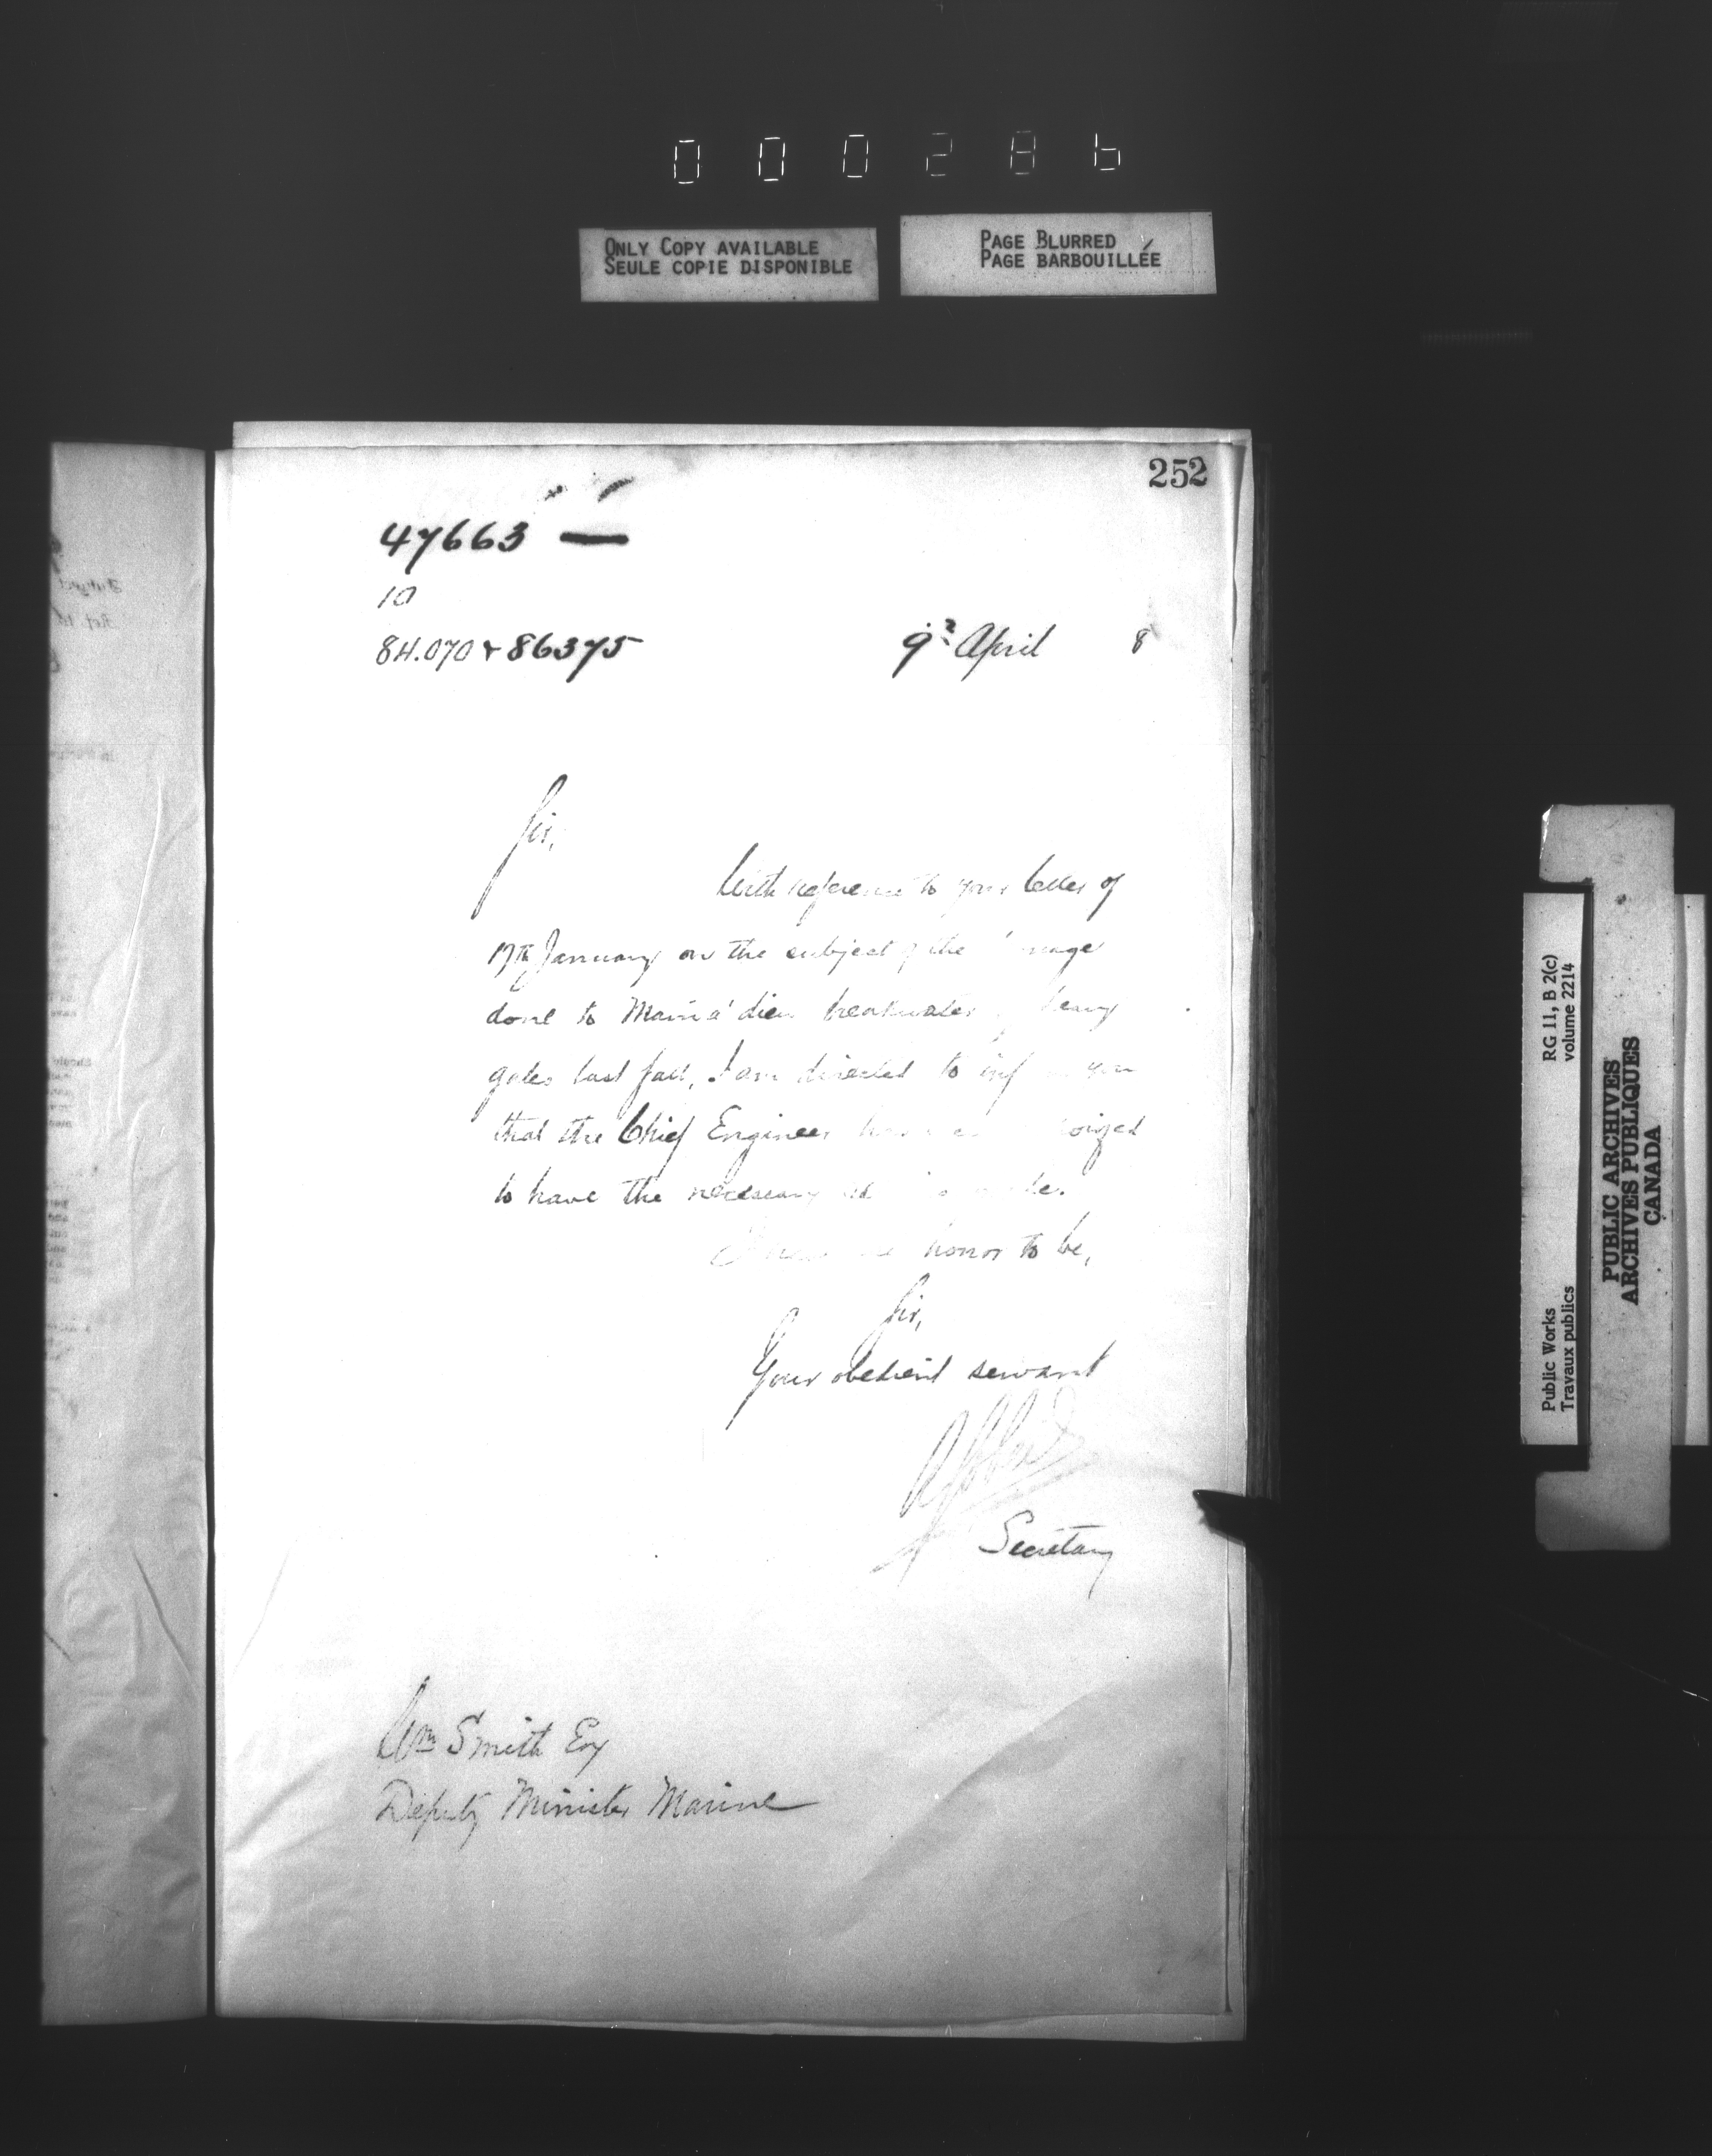 000286
ONLY COPY AVAILABLE
SEULE COPIE DISPONIBLE
PAGE BLURRED
PAGE BARBOUILLÉE
252
47663 —
10
84.070 & 86375
9 April 8
Sir,
With reference to your letter of
17th January on the subject of the
done to Main à dieu breakwater heavy
gales last fall, I am directed to you
that the Chief Engineer
to have the necessary
honor to be,
Sir,
Your obedient servant
Secretary
Wm Smith Esq
Deputy Minister Marine
RG 11, B 2(c)
volume 2214
Public Works
Travaux publics
PUBLIC ARCHIVES
ARCHIVES PUBLIQUES
CANADA